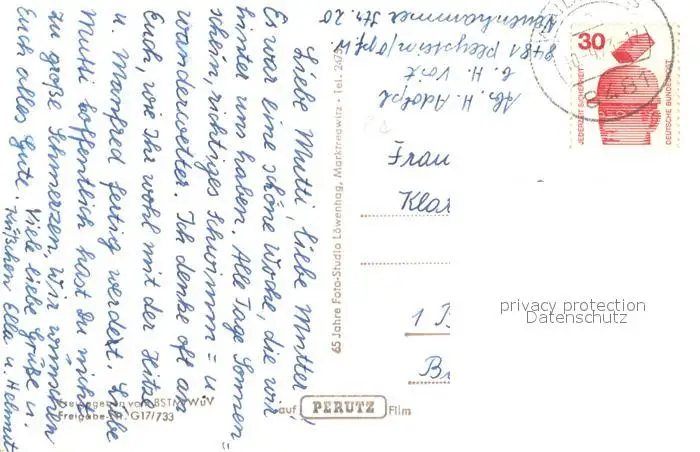 Liebe Mutti, liebe Mutter!
Es war eine schöne Woche, die wir
hinter uns haben. Alle Tage Sonnen=
schein, richtiges Schwimm = u.
Wanderwetter. Ich denke oft an
Euch, wie Ihr wohl mit der Hitze
u. Manfred fertig werdet. Liebe
Mutti hoffentlich hast Du nicht
zu große Schmerzen, Wir wünschen
Euch alles Gute. Viele liebe Grüße u.
Küßchen Ella u. Helmut
65 Jahre Foto-Studio Löwenhag, Marktredwitz · Tel. 247
Freigegeben vom BSTM WuV
Freigabe-Nr. G17/733
auf PERUTZ Film
Ab. H. Adolph
b. H. Voit
8481 Pleystein/Opf.
Str. 20
Frau
Klar
1 B
Be
30
JEDERZEIT SICHERHEIT
DEUTSCHE BUNDESPOST
8481
privacy protection
Datenschutz